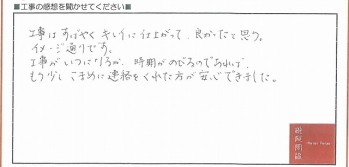 ■工事の感想を聞かせてください■
工事はすばやくキレイに仕上がって、良かったと思う。
イメージ通りです。
工事がいつになるか、時間がのびるのであれば、
もう少しこまめに連絡をくれた方が安心できました。